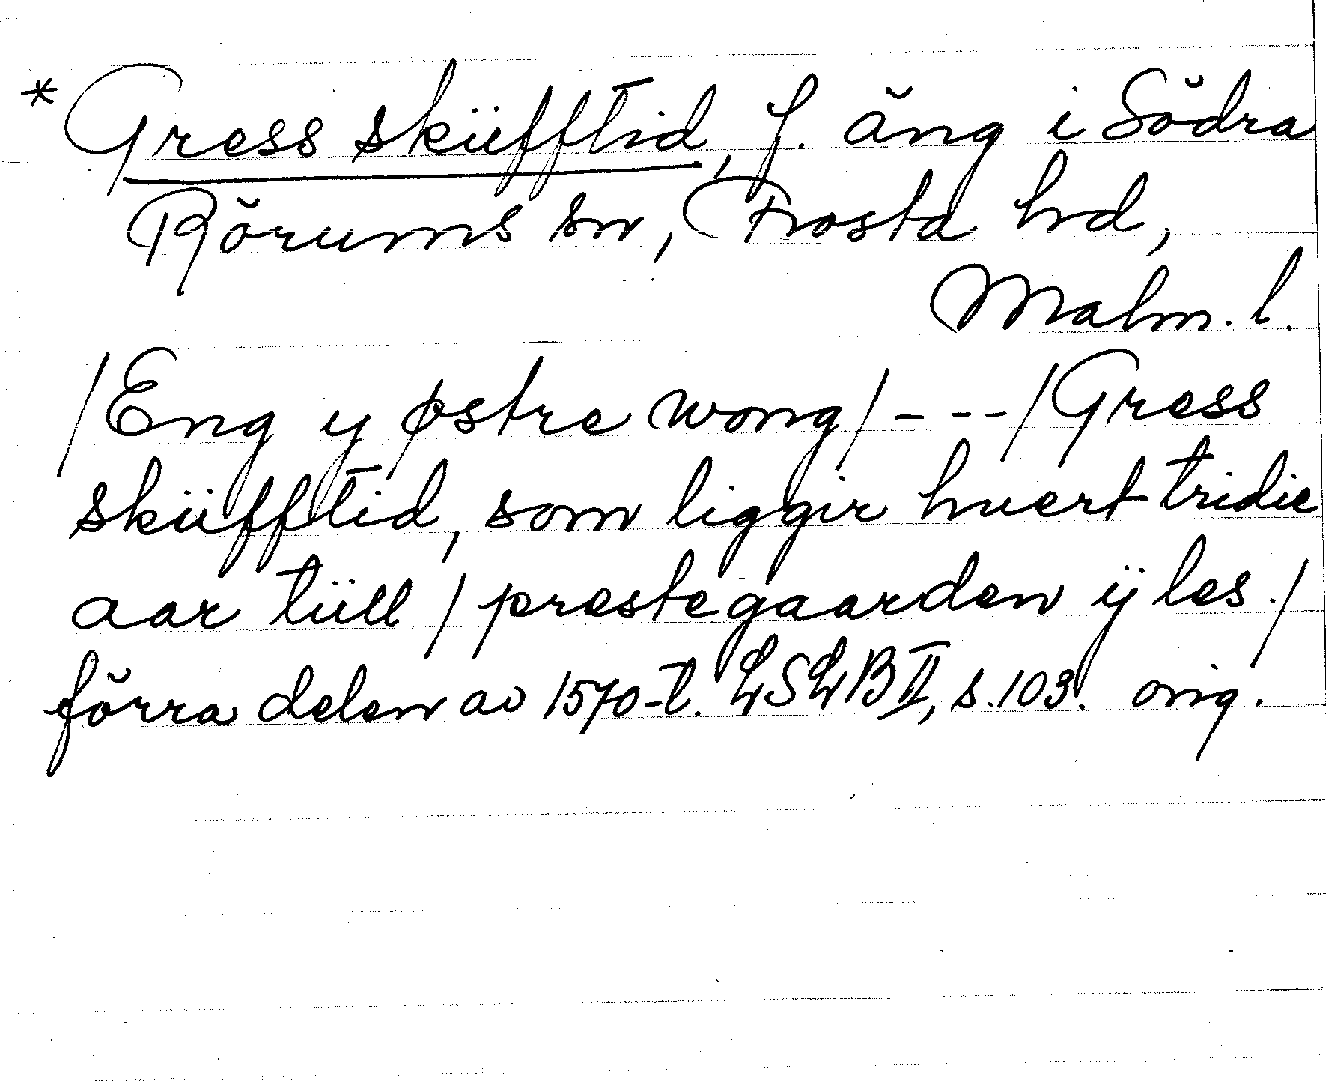 * Gress sküfftid, f. äng i Södra
Rörums sn, Frosta hd,
Malm. l.
/Eng y østre wong/ - - - /Gress
sküfftid, som liggir huert tridie
aar tüll / prestegaarden ÿ les./
förra delen av 1570-t. LSLB II, s. 103. orig.